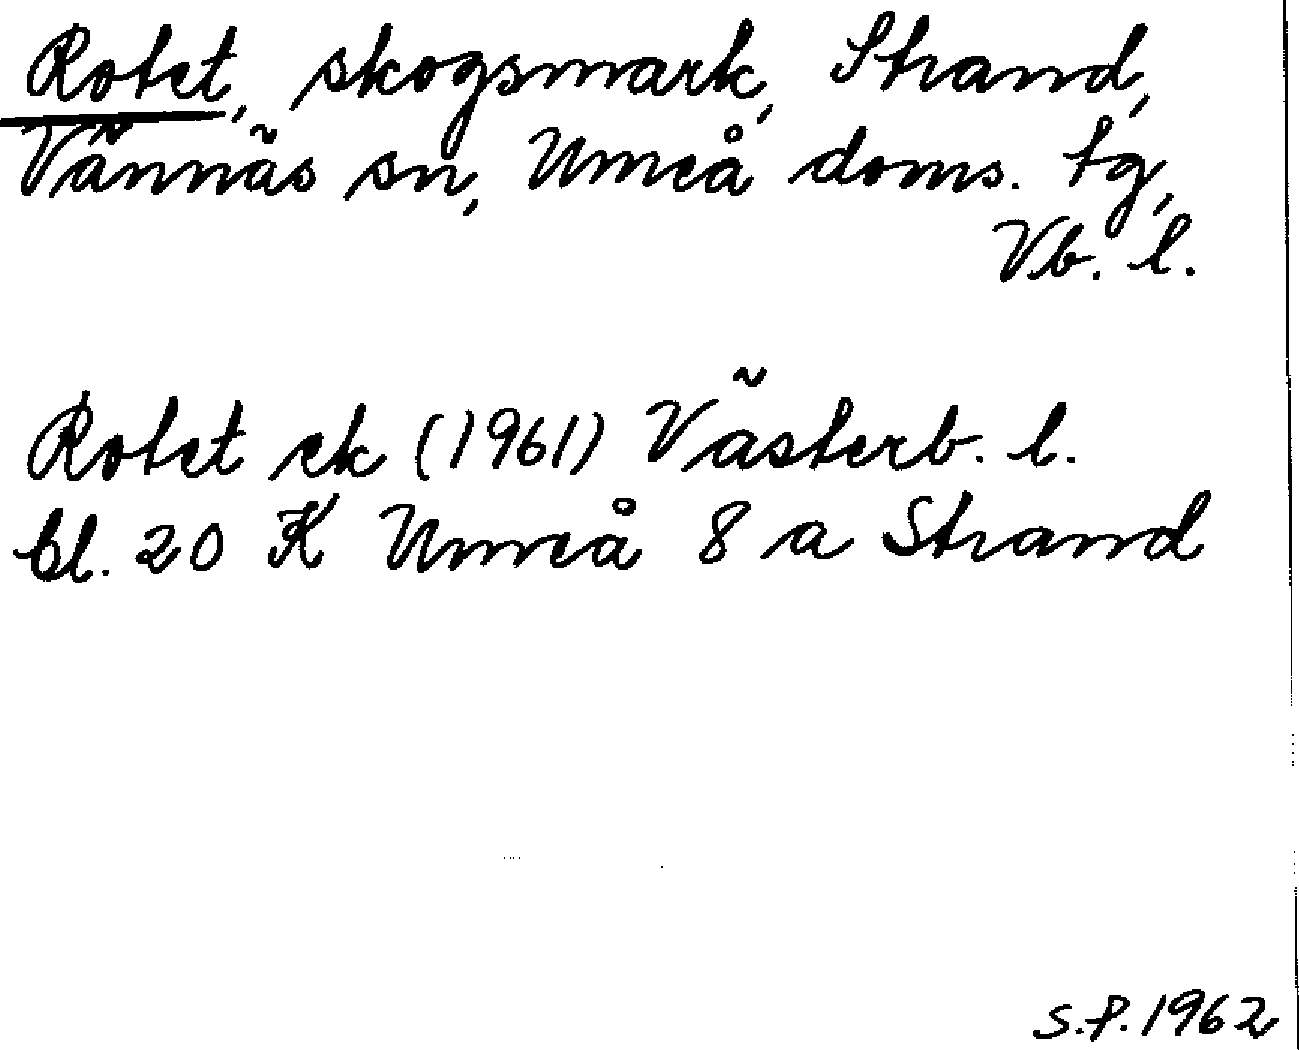 Rotet, skogsmark, Strand,
Vännäs sn, Umeå doms. tg,
Vb. l.
Rotet ek (1961) Västerb. l.
bl. 20 K Umeå 8 a Strand
S.P. 1962